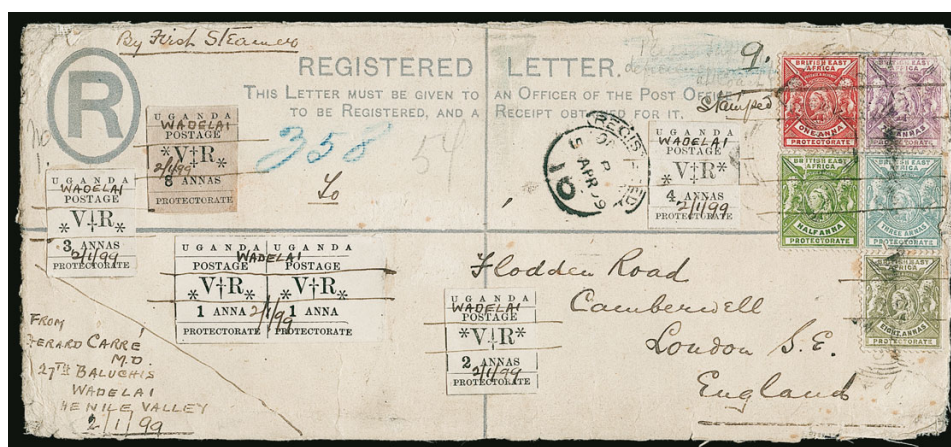 By First Steamer
R
REGISTERED LETTER.
THIS LETTER MUST BE GIVEN TO AN OFFICER OF THE POST OFFICE
TO BE REGISTERED, AND A RECEIPT OBTAINED FOR IT.
9.
Stamped
No
358
54
To
REGISTERED
5 APR 9
UGANDA
WADELAI
POSTAGE
*V†R*
8 ANNAS
2/1/99
PROTECTORATE
UGANDA
WADELAI
POSTAGE
*V†R*
3 ANNAS
2/1/99
PROTECTORATE
UGANDA UGANDA
WADELAI
POSTAGE POSTAGE
*V†R* *V†R*
1 ANNA 2/1/99 1 ANNA
PROTECTORATE PROTECTORATE
UGANDA
WADELAI
POSTAGE
*V†R*
4 ANNAS
2/1/99
PROTECTORATE
UGANDA
WADELAI
POSTAGE
*V†R*
2 ANNAS
2/1/99
PROTECTORATE
BRITISH EAST
AFRICA
ONE ANNA
PROTECTORATE
BRITISH EAST
AFRICA
ANNAS
PROTECTORATE
BRITISH EAST
AFRICA
HALF ANNA
PROTECTORATE
BRITISH EAST
AFRICA
THREE ANNAS
PROTECTORATE
BRITISH EAST
AFRICA
EIGHT ANNAS
PROTECTORATE
Flodden Road
Camberwell
London S.E.
England
FROM
GERARD CARRE
M.D.
27TH BALUCHIS
WADELAI
THE NILE VALLEY
2/1/99